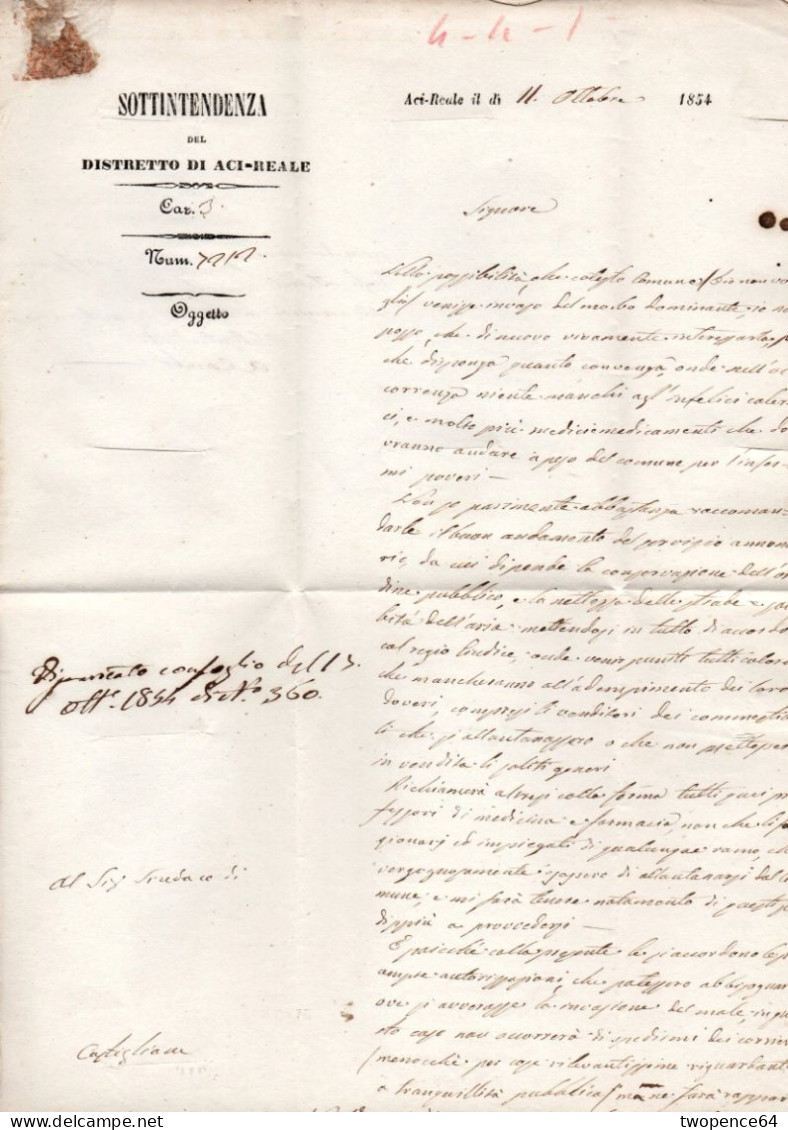 4-4-1
SOTTINTENDENZA
DEL
DISTRETTO DI ACI-REALE
Car. 3
Num. 7212
Oggetto
Aci-Reale il dì 11. Ottobre 1854
Signore
Nella possibilità, che cotesto Comune /Dio non vo
glia/ venisse invaso del morbo dominante io no
posso, che di nuovo vivamente interessarla, p
che disponga quanto convenga, onde nell'oc
correnza niente manchi agl'infelici coler
ci, e molto più medici e medicamenti che do
vranno andare a peso del comune per l'infer
mi poveri —
Non so parimente abbastanza raccoman
darle il buon andamento del servizio annona
rio, da cui dipende la conservazione dell'or
dine pubblico, e la nettezza delle strade e salu
brità dell'aria mettendosi in tutto di accordo
col regio Giudice, onde venir puniti tutti coloro
che mancheranno all'adempimento dei loro
doveri, compresi li venditori dei commestibi
li che si allontanassero o che non mettessero
in vendita li soliti generi
Richiamerà altresì colla forma tutti pro
fessori di medicina e farmacia, non che li
gionarj ed impiegati di qualunque ramo, ch
vergognosamente osassero di allontanarsi dal co
mune, e mi farà tenere notamento di questi
a provvedersi —
E poicchè colla presente le si accordono le
ampie autorizzazioni, che potessero abbisognar
ove si avverasse la invasione del male, in que
sto caso non occorrerà di spedirmi dei corrieri
/menocchè per cose rilevantissime riguardanti
a tranquillità pubblica/ ma ne farà rappor
Riscontrato con foglio del 13.
Ott.e 1854 di N.o 360.
Al Sig Sindaco di
Castiglione
www.delcampe.net
twopence64